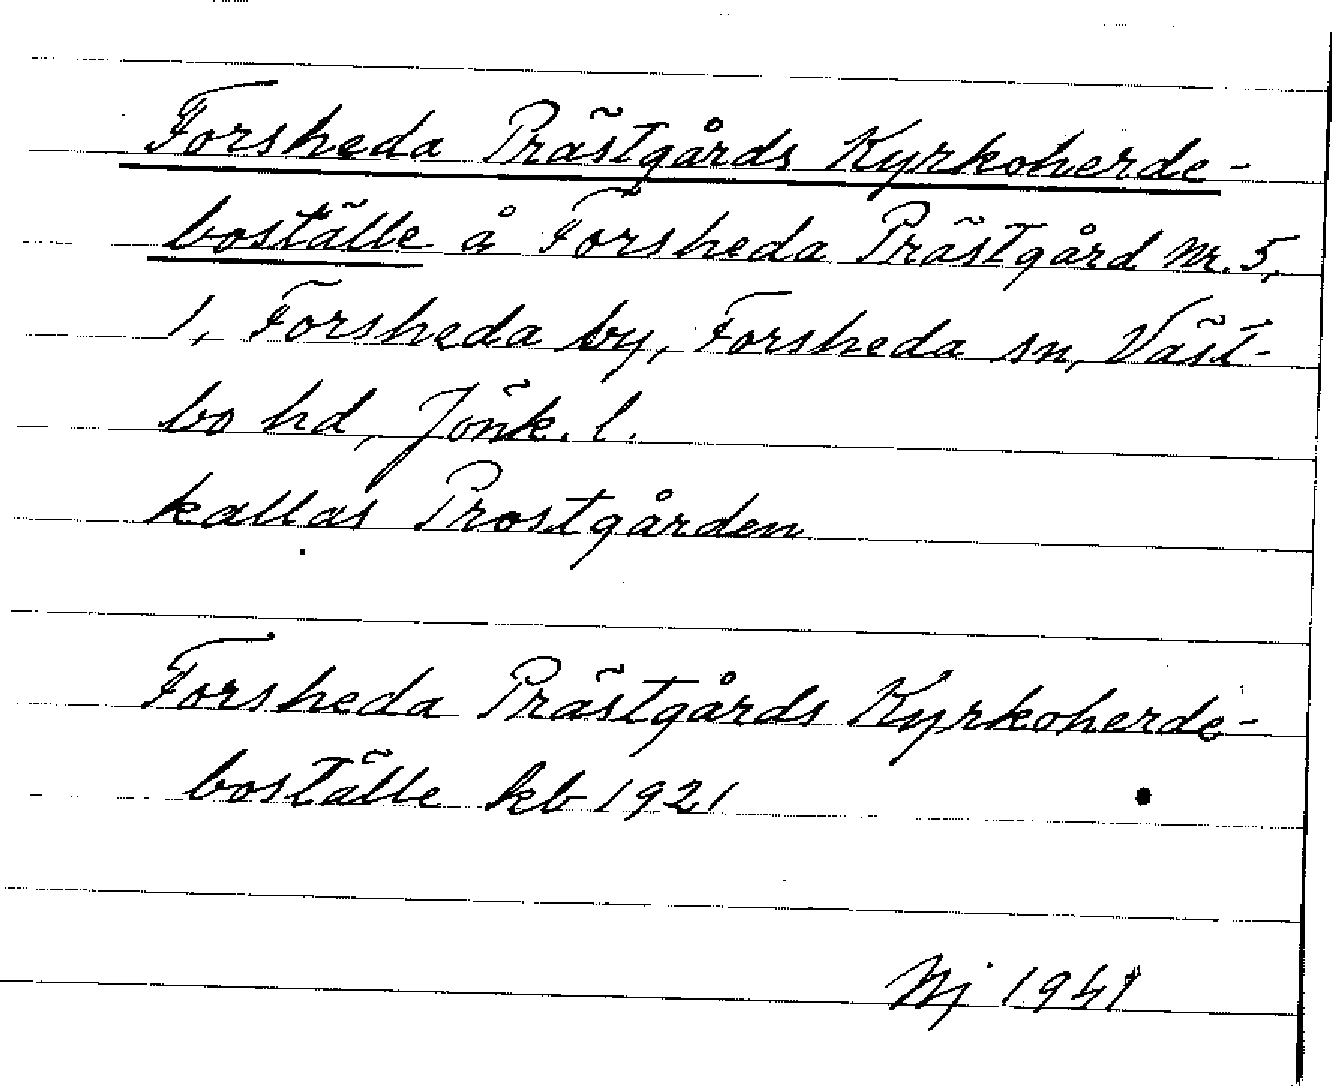 Forsheda Prästgårds Kyrkoherde-
boställe å Forsheda Prästgård Nr. 5,
1, Forsheda by, Forsheda sn, Väst-
bo hd, Jönk. l.
kallas Prostgården
Forsheda Prästgårds Kyrkoherde-
boställe kb 1921
1941